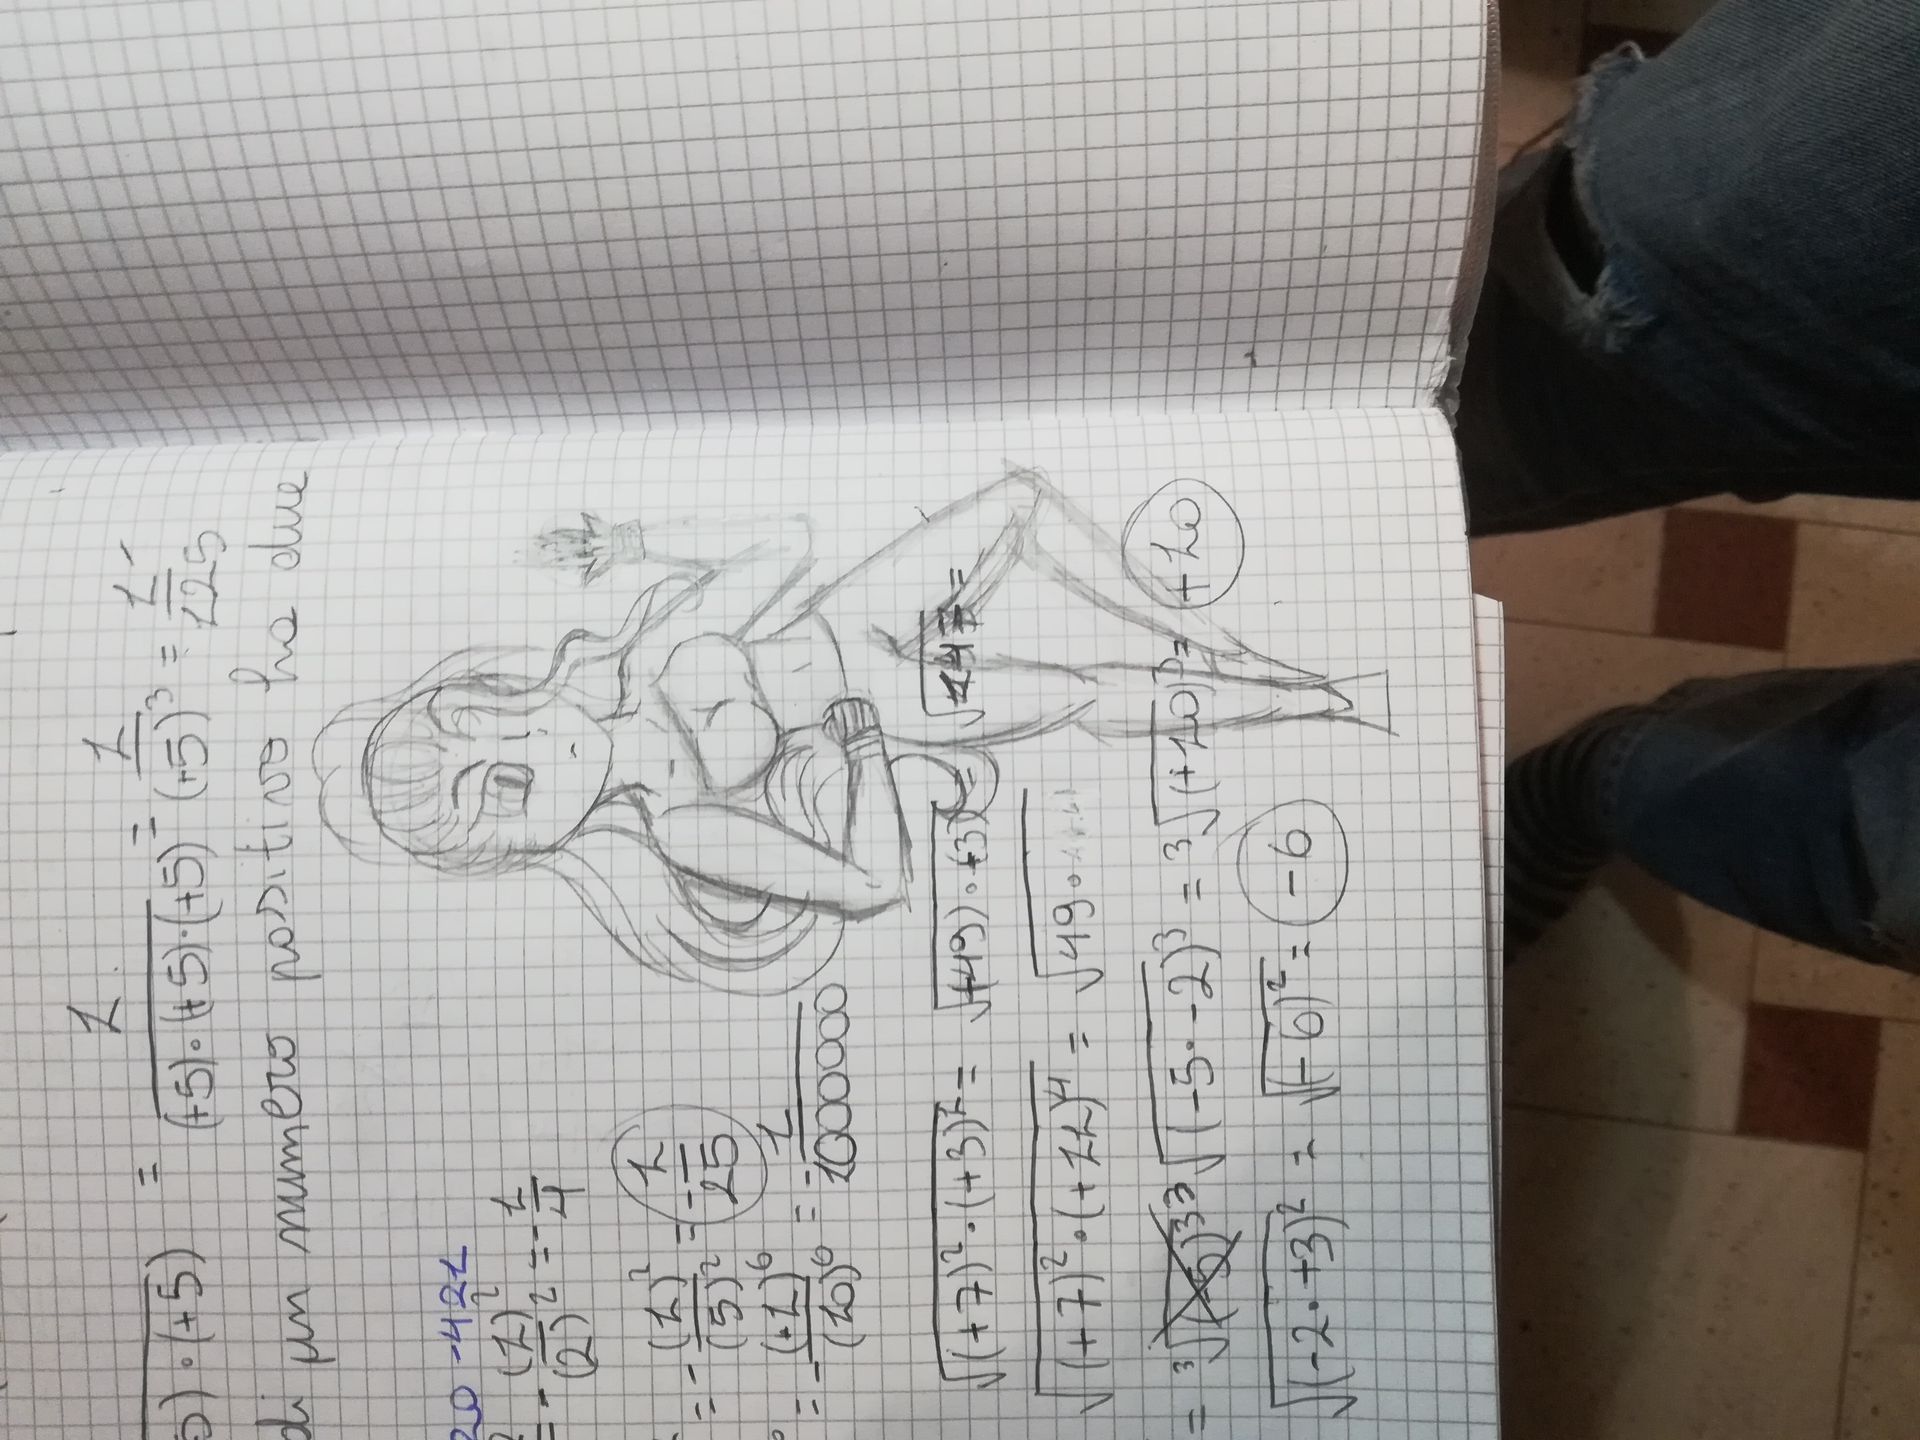 1 1 1
(+5)·(+5) = (+5)·(+5)·(+5) = (+5)³ = 125
di un numero positivo ha due
20 -421
= -(1)²/(2)² = -1/4
= -(1)²/(5)² = -1/25
= -(+1)⁶/(10)⁶ = -1/1000000
√(+7)²·(+3)² = √(+49)·(+3)² = √147 =
√(+7)²·(+11)⁴ = √49·
= ³√(-5·-2)³ = ³√(+10)³ = +10
√(-2·+3)² = √(-6)² = -6